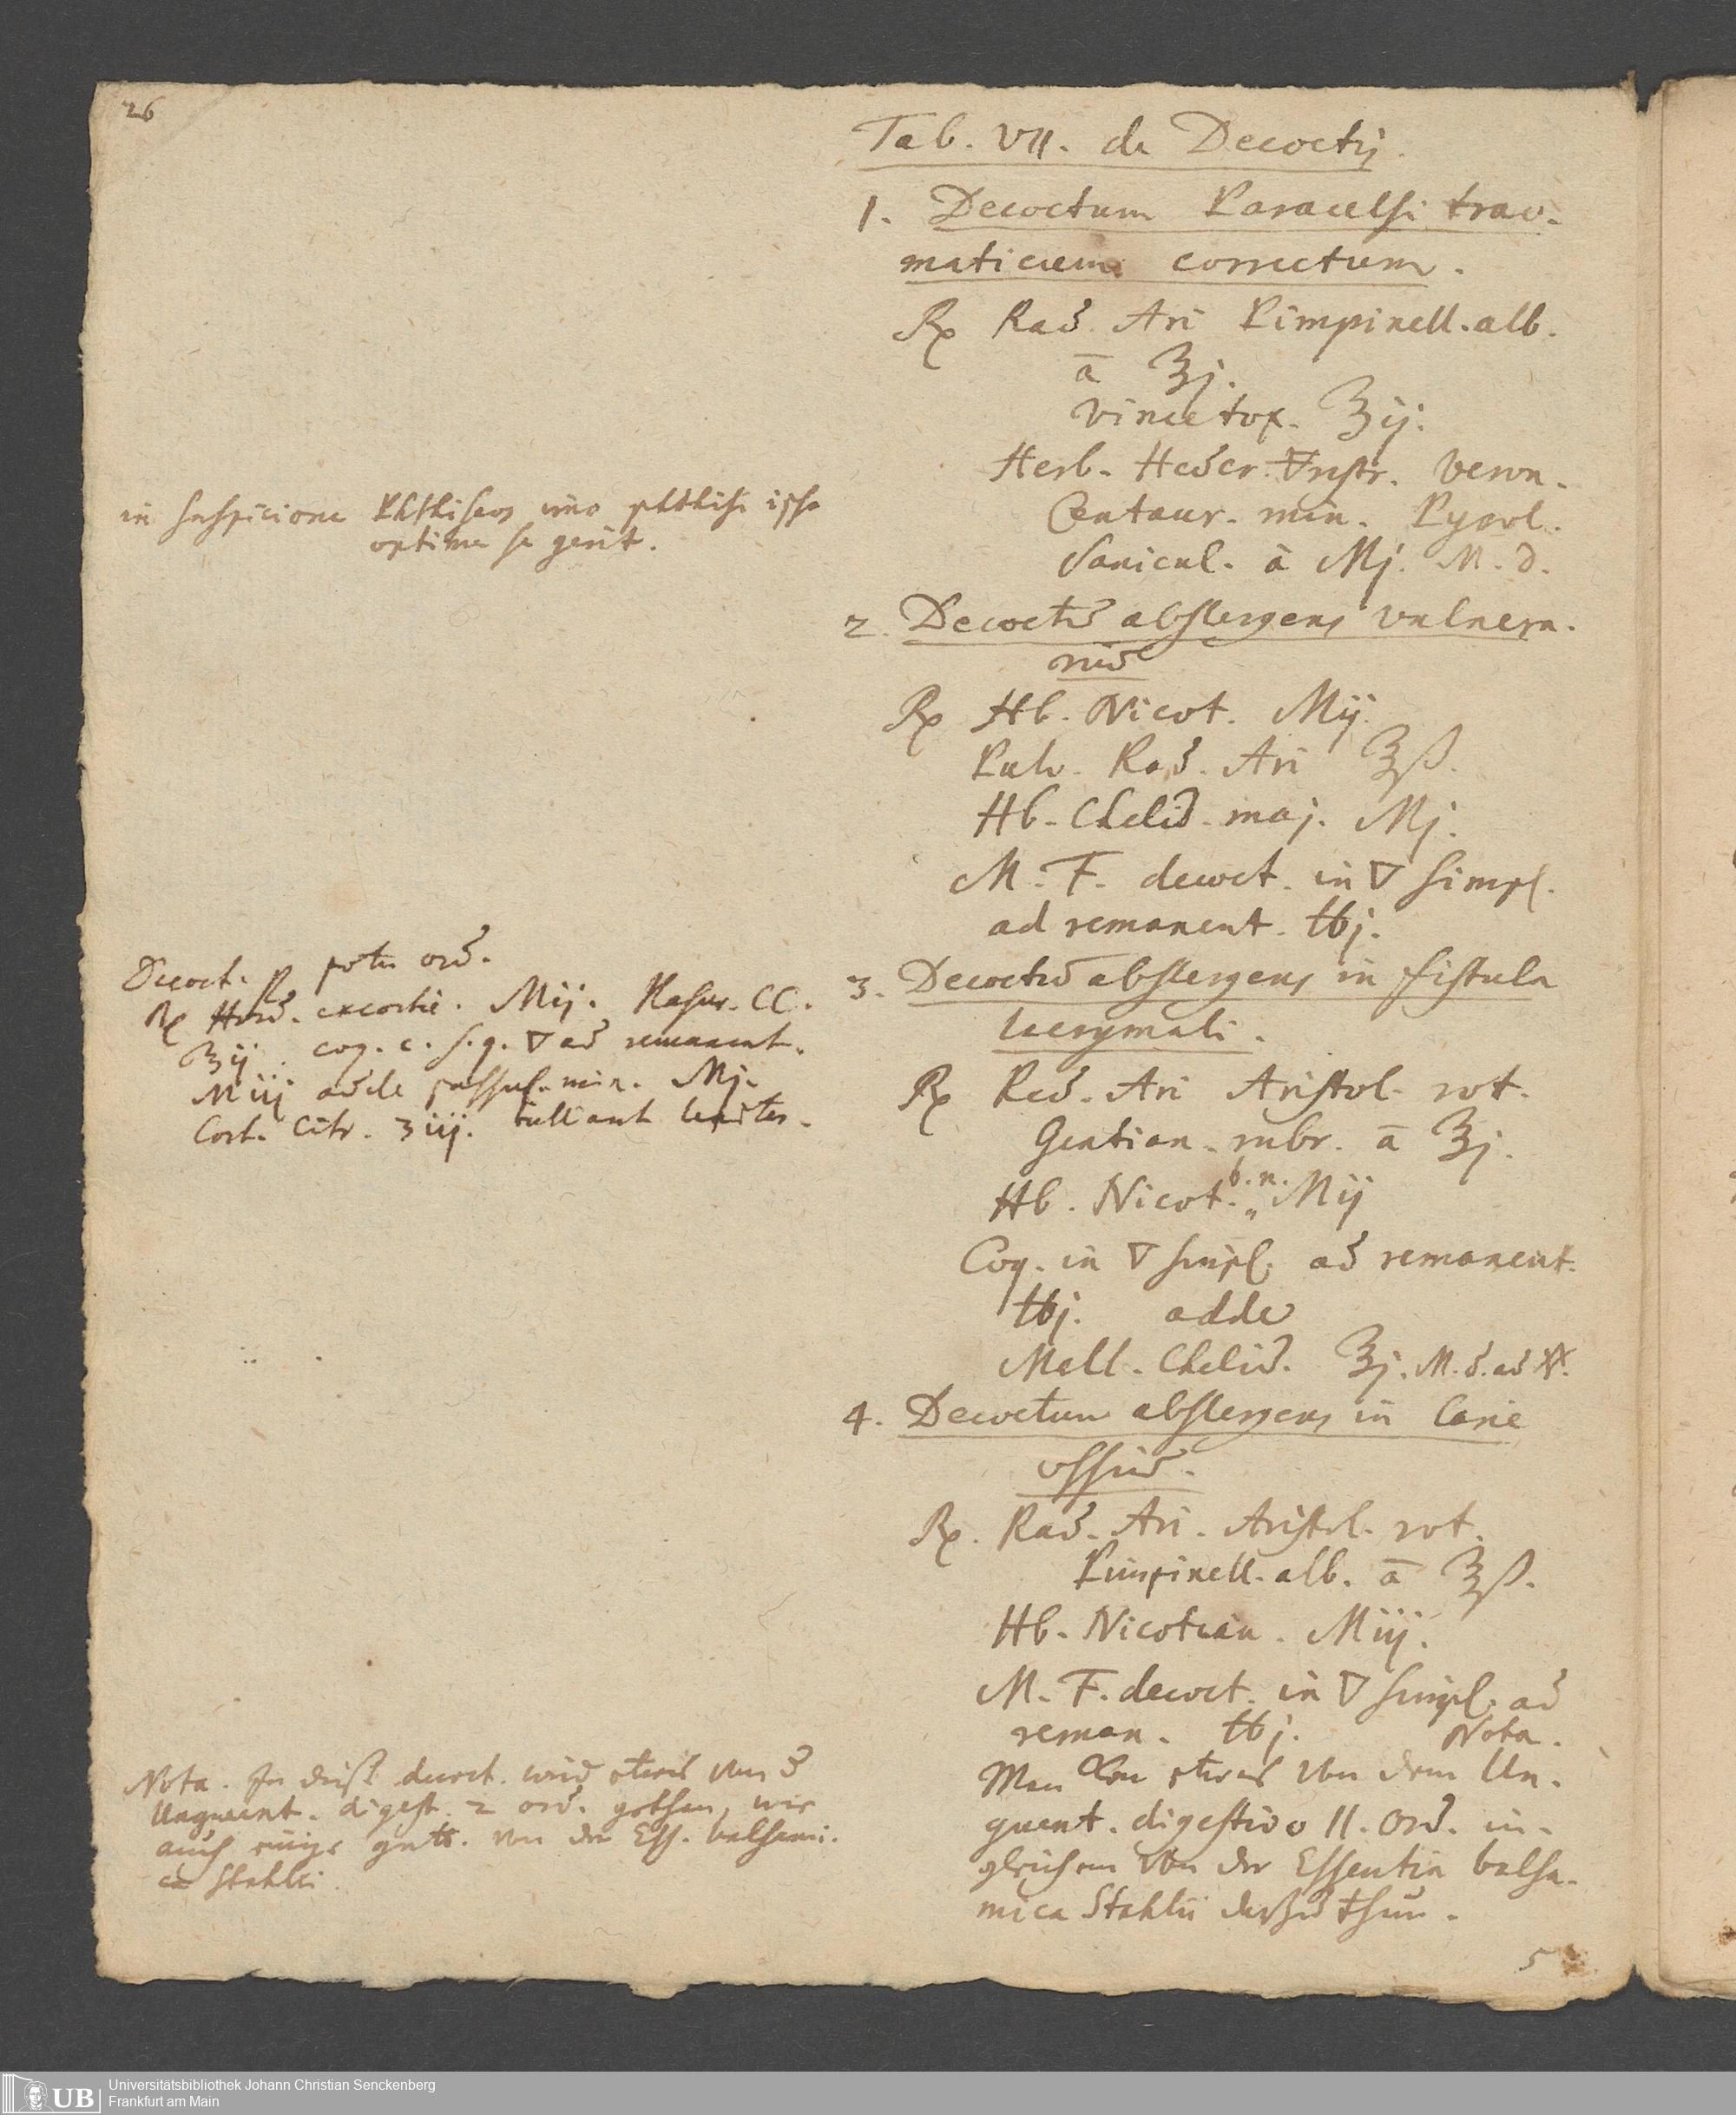 26
Tab. VII. de Decoctis.
1. Decoctum Paracelsi trau-
maticum correctum.
℞ Rad. Ari Pimpinell. alb.
ā ℥j.
Vincetox. ℥ij.
Herb. Heder. 🜃restr. Veron.
Centaur. min. Pyrol.
Sanicul. ā Mj. M. d.
in suspicione Phthiseos imo phthisi ipsa
optime se gerit.
2. Decoctū abstergens vulnera-
riū
℞ Hb. Nicot. Mij.
Pulv. Rad. Ari ℥ß.
Hb. Chelid. maj. Mj.
M. F. decoct. in ▽ simpl.
ad remanent. ℔j.
3. Decoctū abstergens in fistula
lacrymali.
℞ Rad. Ari Aristol. rot.
Gentian. rubr. ā ℥j.
Hb. Nicot. b. n. Mij
Coq. in ▽ simpl. ad remanent.
℔j. adde
Mell. Chelid. ℥j. M. d. ad
Decoct. P potu ord.
℞ Hord. excortic. Mij. Rasur. CC.
℥ij. coq. c. s. q. ▽ ad remanent.
Miij adde passul. min. Mj.
Cort. Citr. ʒiij. bulliant leniter.
4. Decoctum abstergens in Carie
ossiū.
℞. Rad. Ari. Aristol. rot.
Pimpinell. alb. ā ℥ß.
Hb. Nicotian. Miij.
M. F. decoct. in ▽ simpl. ad
reman. ℔j. Nota.
Man kan etwas von dem Un-
guent. digestivo II. Ord. in-
gleichen von der Essentia balsa-
mica Stahlii darzu thun.
Nota. In diese decoct. wird etwas von
Unguent. digest. 2 ord. gethan, wie
auch einige gutt. von der Ess. balsami-
ca Stahlii.
5
UB
Universitätsbibliothek Johann Christian Senckenberg
Frankfurt am Main